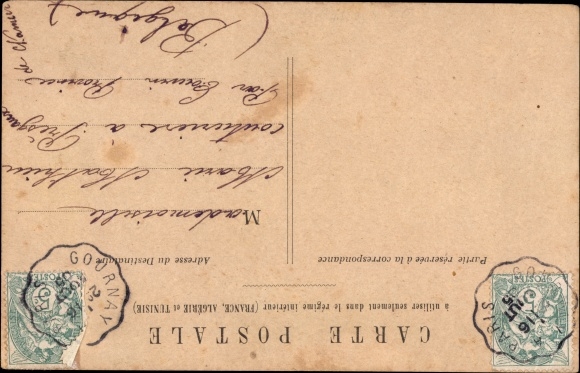 CARTE POSTALE
à utiliser seulement dans le régime intérieur (FRANCE, ALGÉRIE et TUNISIE)
Partie réservée à la correspondance
Adresse du Destinataire
Mademoiselle
Marie Mathieu
couturière à Presgaux
Par Couvin Province
de Namur
(Belgique)
GOURNAY
PARIS
16